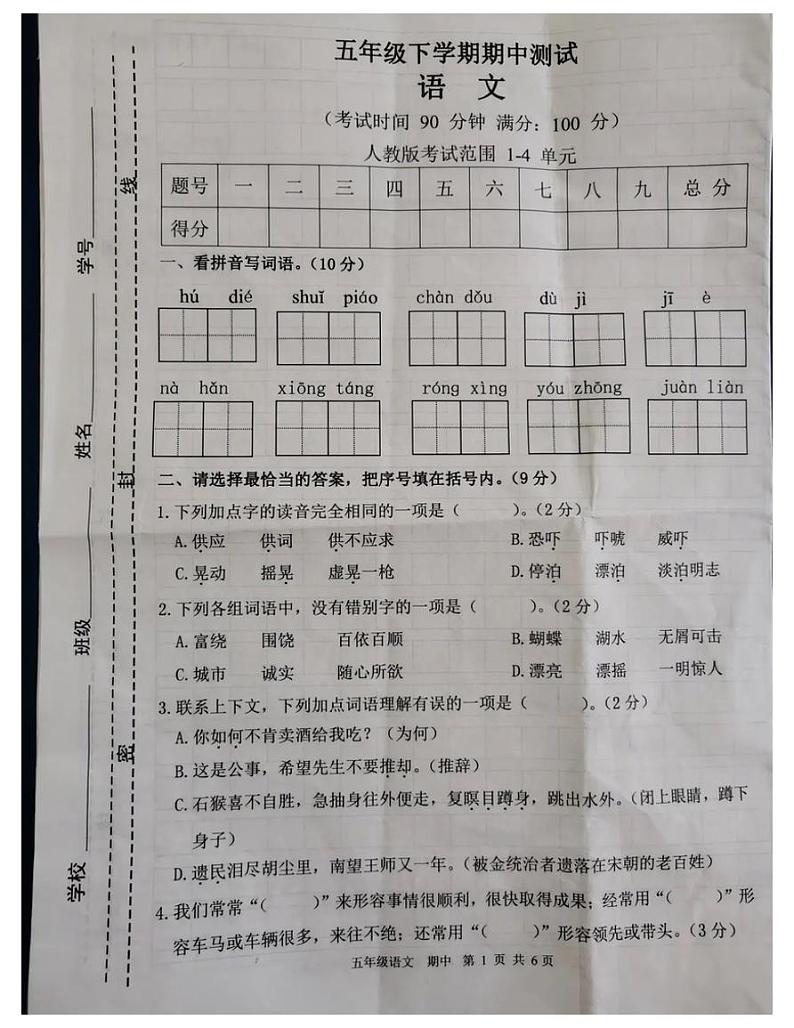 五年级下学期期中测试
语 文
(考试时间 90 分钟 满分: 100 分)
人教版考试范围 1-4 单元
题号 一 二 三 四 五 六 七 八 九 总 分
得分
一、看拼音写词语。(10 分)
hú dié shuǐ piáo chàn dǒu dù jì jī è
nà hǎn xiōng táng róng xìng yóu zhōng juàn liàn
二、请选择最恰当的答案,把序号填在括号内。(9 分)
1.下列加点字的读音完全相同的一项是( )。(2 分)
A.供应 供词 供不应求 B.恐吓 吓唬 威吓
C.晃动 摇晃 虚晃一枪 D.停泊 漂泊 淡泊明志
2.下列各组词语中,没有错别字的一项是( )。(2 分)
A.富绕 围饶 百依百顺 B.蝴蝶 湖水 无屑可击
C.城市 诚实 随心所欲 D.漂亮 漂摇 一明惊人
3.联系上下文,下列加点词语理解有误的一项是( )。(2 分)
A.你如何不肯卖酒给我吃?(为何)
B.这是公事,希望先生不要推却。(推辞)
C.石猴喜不自胜,急抽身往外便走,复瞑目蹲身,跳出水外。(闭上眼睛,蹲下
身子)
D.遗民泪尽胡尘里,南望王师又一年。(被金统治者遗落在宋朝的老百姓)
4.我们常常“( )”来形容事情很顺利,很快取得成果;经常用“( )”形
容车马或车辆很多,来往不绝;还常用“( )”形容领先或带头。(3 分)
五年级语文 期中 第 1 页 共 6 页
学校 班级 姓名 学号
密 封 线